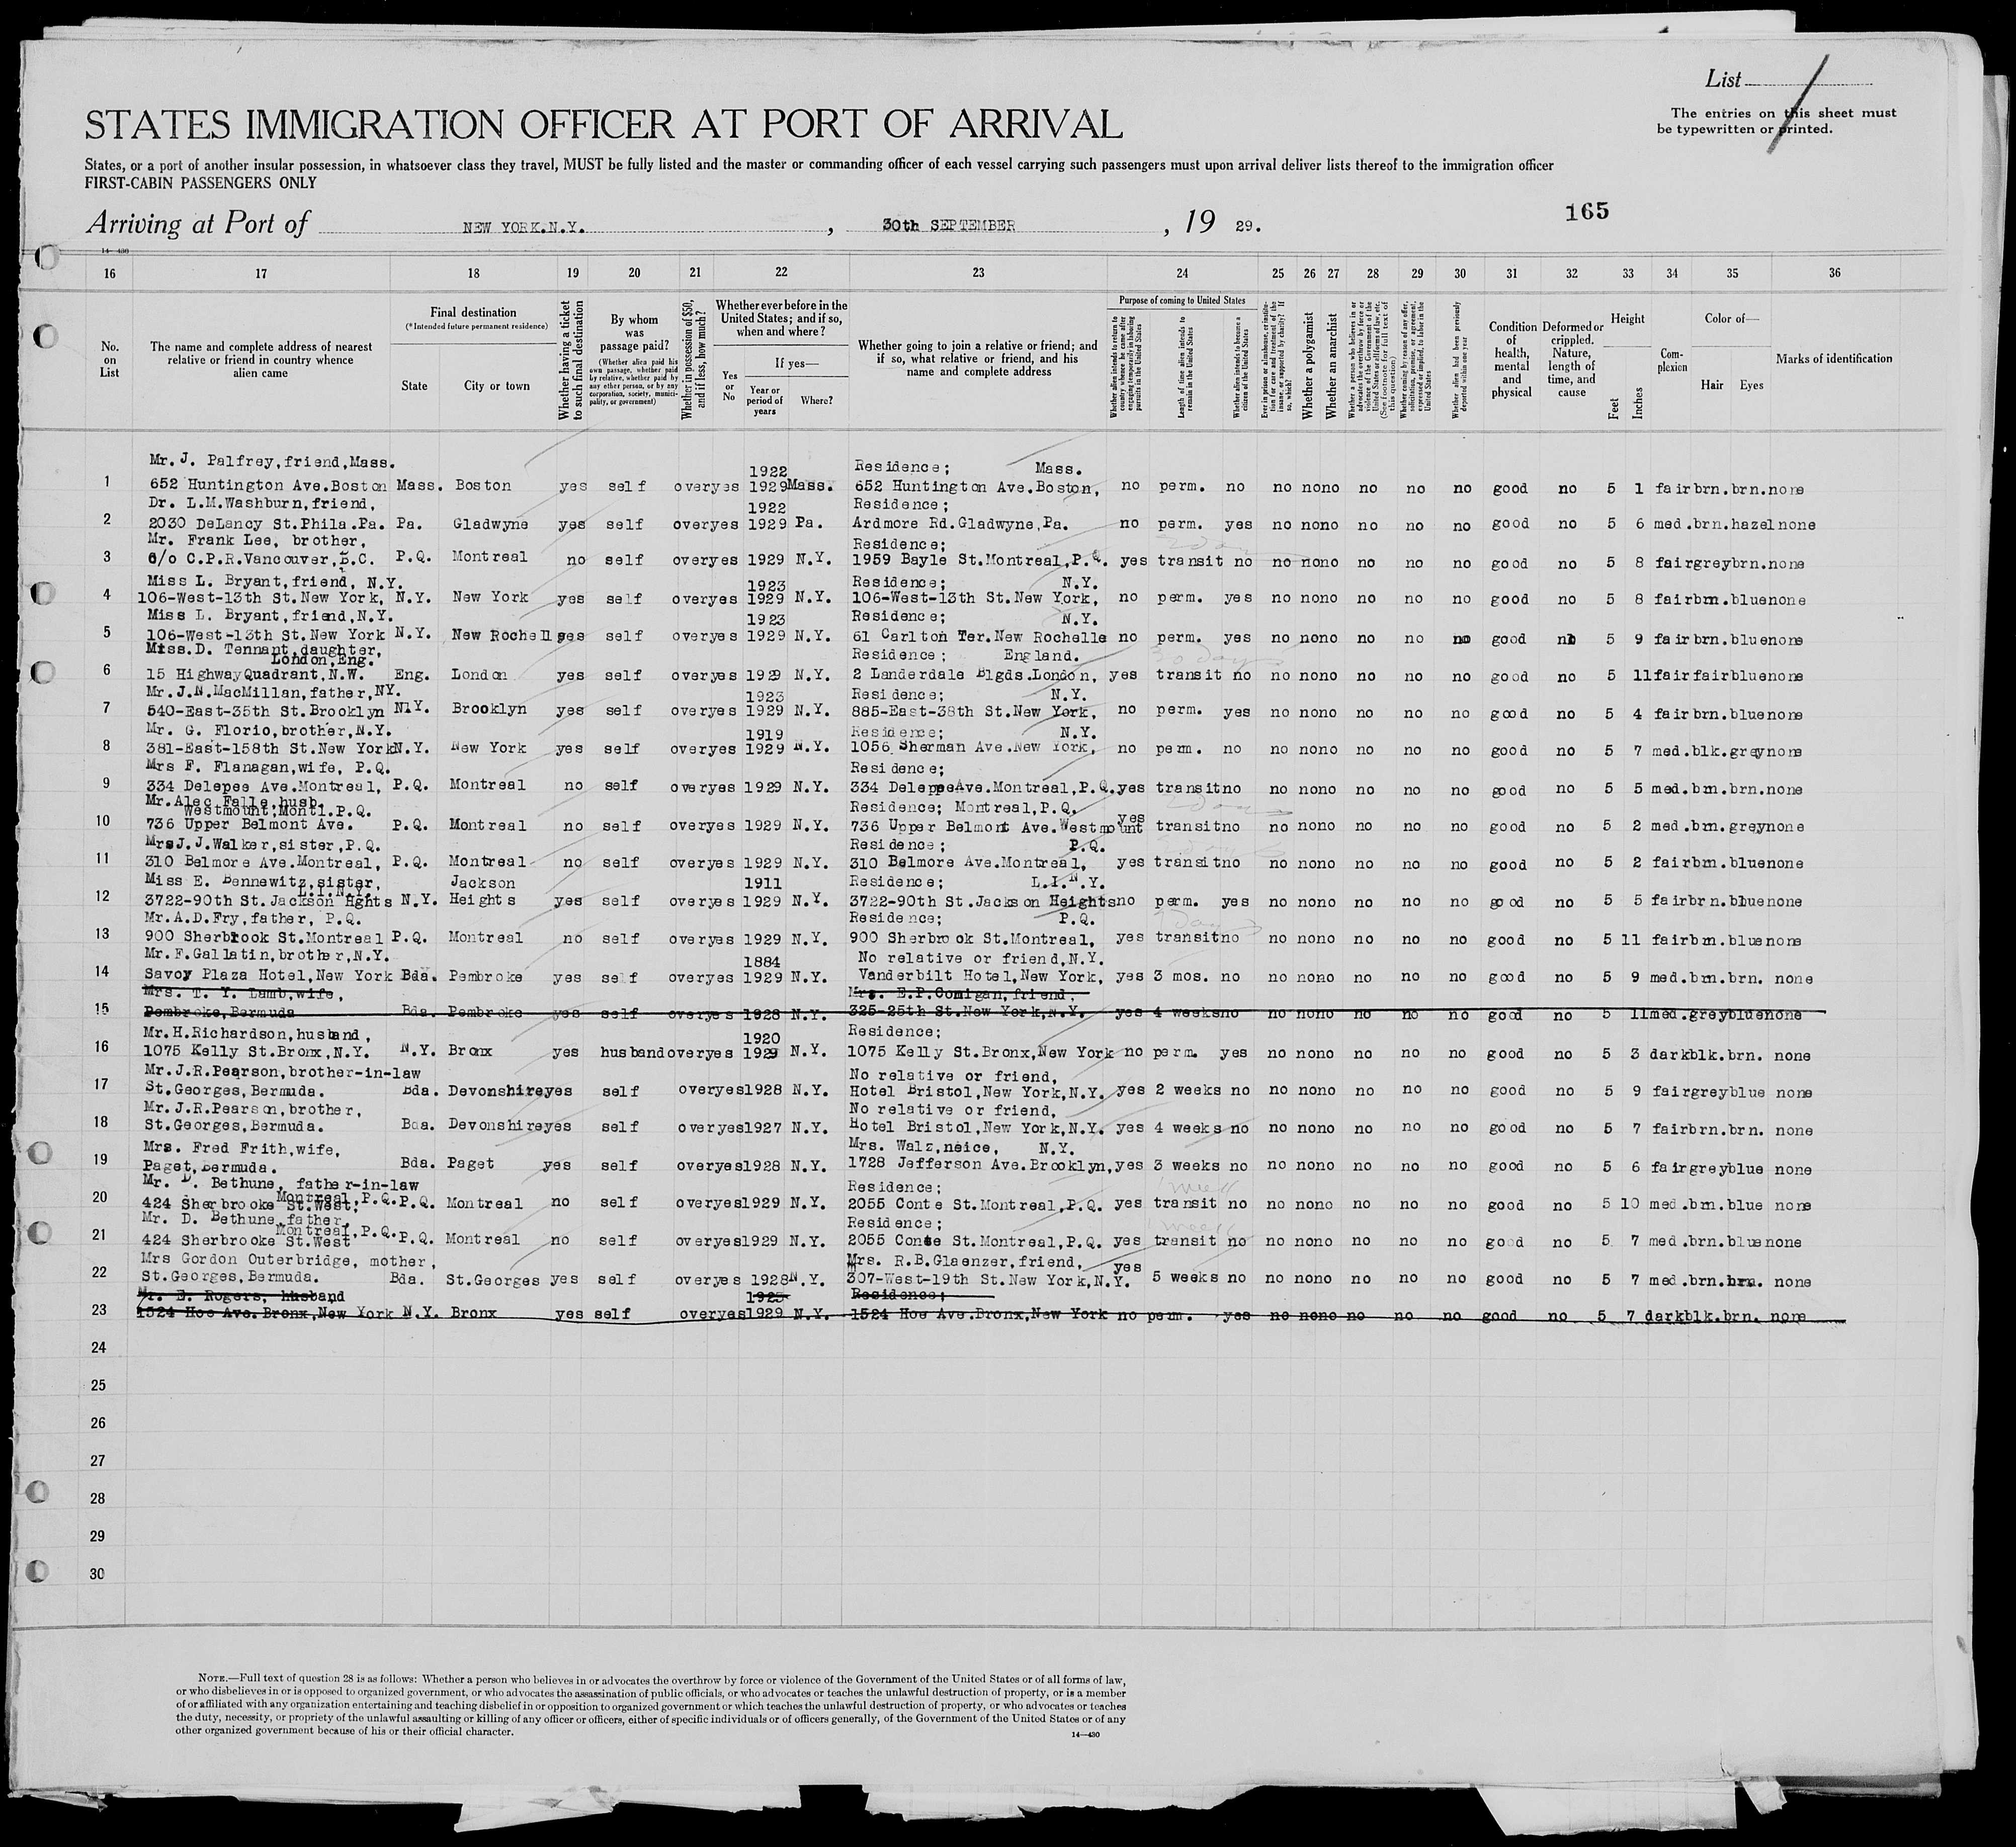 List 1
The entries on this sheet must
be typewritten or printed.
STATES IMMIGRATION OFFICER AT PORT OF ARRIVAL
States, or a port of another insular possession, in whatsoever class they travel, MUST be fully listed and the master or commanding officer of each vessel carrying such passengers must upon arrival deliver lists thereof to the immigration officer
FIRST-CABIN PASSENGERS ONLY
165
Arriving at Port of NEW YORK.N.Y. , 30th SEPTEMBER , 19 29.
14-430
16 17 18 19 20 21 22 23 24 25 26 27 28 29 30 31 32 33 34 35 36
No. on List
The name and complete address of nearest relative or friend in country whence alien came
Final destination
(*Intended future permanent residence)
State
City or town
Whether having a ticket to such final destination
By whom was passage paid?
(Whether alien paid his own passage, whether paid by relative, whether paid by any other person, or by any corporation, society, municipality, or government)
Whether in possession of $50, and if less, how much?
Whether ever before in the United States; and if so, when and where?
Yes or No
If yes—
Year or period of years
Where?
Whether going to join a relative or friend; and if so, what relative or friend, and his name and complete address
Purpose of coming to United States
Whether alien intends to return to country whence he came after engaging temporarily in laboring pursuits in the United States
Length of time alien intends to remain in the United States
Whether alien intends to become a citizen of the United States
Ever in prison or almshouse, or institution for care and treatment of the insane, or supported by charity? If so, which?
Whether a polygamist
Whether an anarchist
Whether a person who believes in or advocates the overthrow by force or violence of the Government of the United States or all forms of law, etc. (See footnote for full text of this question)
Whether coming by reason of any offer, solicitation, promise, or agreement, expressed or implied, to labor in the United States
Whether alien had been previously deported within one year
Condition of health, mental and physical
Deformed or crippled. Nature, length of time, and cause
Height
Feet
Inches
Complexion
Color of—
Hair Eyes
Marks of identification
Mr. J. Palfrey,friend,Mass. 1922 Residence; Mass.
1 652 Huntington Ave.Boston Mass. Boston yes self over yes 1929 Mass. 652 Huntington Ave.Boston, no perm. no no no no no no no good no 5 1 fair brn. brn. none
Dr. L.M.Washburn,friend, 1922 Residence;
2 2030 DeLancy St.Phila.Pa. Pa. Gladwyne yes self over yes 1929 Pa. Ardmore Rd.Gladwyne,Pa. no perm. yes no no no no no no good no 5 6 med. brn. hazel none
Mr. Frank Lee, brother, Residence;
3 c/o C.P.R.Vancouver,B.C. P.Q. Montreal no self over yes 1929 N.Y. 1959 Bayle St.Montreal,P.Q. yes transit no no no no no no no good no 5 8 fair grey brn. none
Miss L. Bryant,friend, N.Y. 1923 Residence; N.Y.
4 106-West-13th St.New York, N.Y. New York yes self over yes 1929 N.Y. 106-West-13th St.New York, no perm. yes no no no no no no good no 5 8 fair brn. blue none
Miss L. Bryant,friend,N.Y. 1923 Residence; N.Y.
5 106-West-13th St.New York N.Y. New Rochell yes self over yes 1929 N.Y. 61 Carlton Ter.New Rochelle no perm. yes no no no no no no good no 5 9 fair brn. blue none
Miss.D. Tennant,daughter, Residence; England. 30 days
London,Eng.
6 15 Highway Quadrant,N.W. Eng. London yes self over yes 1929 N.Y. 2 Landerdale Blgds.London, yes transit no no no no no no no good no 5 11 fair fair blue none
Mr.J.N.MacMillan,father,NY. 1923 Residence; N.Y.
7 540-East-35th St.Brooklyn N.Y. Brooklyn yes self over yes 1929 N.Y. 885-East-38th St.New York, no perm. yes no no no no no no good no 5 4 fair brn. blue none
Mr. G. Florio,brother,N.Y. 1919 Residence; N.Y.
8 381-East-158th St.New York N.Y. New York yes self over yes 1929 N.Y. 1056 Sherman Ave.New York, no perm. no no no no no no no good no 5 7 med. blk. grey none
Mrs F. Flanagan,wife, P.Q. Residence;
9 334 Delepee Ave.Montreal, P.Q. Montreal no self over yes 1929 N.Y. 334 DelepeeAve.Montreal,P.Q. yes transit no no no no no no no good no 5 5 med. brn. brn. none
Mr.Alec Falle,husb. Residence; Montreal,P.Q.
Westmount;Montl.P.Q.
10 736 Upper Belmont Ave. P.Q. Montreal no self over yes 1929 N.Y. 736 Upper Belmont Ave.Westmount yes transit no no no no no no no good no 5 2 med. brn. grey none
MrsJ.J.Walker,sister,P.Q. Residence; P.Q.
11 310 Belmore Ave.Montreal, P.Q. Montreal no self over yes 1929 N.Y. 310 Belmore Ave.Montreal, yes transit no no no no no no no good no 5 2 fair brn. blue none
Miss E. Bennewitz,sister, Jackson 1911 Residence; L.I.N.Y.
L.I.N.Y.
12 3722-90th St.Jackson Hghts N.Y. Heights yes self over yes 1929 N.Y. 3722-90th St.Jackson Heights no perm. yes no no no no no no good no 5 5 fair brn. blue none
Mr.A.D.Fry,father, P.Q. Residence; P.Q.
13 900 Sherbrook St.Montreal P.Q. Montreal no self over yes 1929 N.Y. 900 Sherbrook St.Montreal, yes transit no no no no no no no good no 5 11 fair brn. blue none
Mr.F.Gallatin,brother,N.Y. 1884 No relative or friend,N.Y.
14 Savoy Plaza Hotel,New York Bda. Pembroke yes self over yes 1929 N.Y. Vanderbilt Hotel,New York, yes 3 mos. no no no no no no no good no 5 9 med. brn. brn. none
Mrs. T. Y. Lamb,wife, Mrs. E.P.Comigan,friend,
15 Pembroke,Bermuda Bda. Pembroke yes self over yes 1928 N.Y. 325-25th St.New York,N.Y. yes 4 weeks no no no no no no no good no 5 11 med. grey blue none
Mr.H.Richardson,husband, 1920 Residence;
16 1075 Kelly St.Bronx,N.Y. N.Y. Bronx yes husband over yes 1929 N.Y. 1075 Kelly St.Bronx,New York no perm. yes no no no no no no good no 5 3 dark blk. brn. none
Mr.J.R.Pearson,brother-in-law No relative or friend,
17 St.Georges,Bermuda. Bda. Devonshire yes self over yes 1928 N.Y. Hotel Bristol,New York,N.Y. yes 2 weeks no no no no no no no good no 5 9 fair grey blue none
Mr.J.R.Pearson,brother, No relative or friend,
18 St.Georges,Bermuda. Bda. Devonshire yes self over yes 1927 N.Y. Hotel Bristol,New York,N.Y. yes 4 weeks no no no no no no no good no 5 7 fair brn. brn. none
Mrs. Fred Frith,wife, Mrs. Walz,neice, N.Y.
19 Paget,Bermuda. Bda. Paget yes self over yes 1928 N.Y. 1728 Jefferson Ave.Brooklyn, yes 3 weeks no no no no no no no good no 5 6 fair grey blue none
Mr. D. Bethune, father-in-law Residence; 1 week
Montreal,P.Q.
20 424 Sherbrooke St.West; P.Q. Montreal no self over yes 1929 N.Y. 2055 Conte St.Montreal,P.Q. yes transit no no no no no no no good no 5 10 med. brn. blue none
Mr. D. Bethune,father, Residence; 1 week
Montreal,P.Q.
21 424 Sherbrooke St.West P.Q. Montreal no self over yes 1929 N.Y. 2055 Conte St.Montreal,P.Q. yes transit no no no no no no no good no 5 7 med. brn. blue none
Mrs Gordon Outerbridge, mother, Mrs. R.B.Glaenzer,friend, yes
22 St.Georges,Bermuda. Bda. St.Georges yes self over yes 1928 N.Y. 307-West-19th St.New York,N.Y. 5 weeks no no no no no no no good no 5 7 med. brn. brn. none
Mr. E. Rogers, husband 1925 Residence;
23 1524 Hoe Ave.Bronx,New York N.Y. Bronx yes self over yes 1929 N.Y. 1524 Hoe Ave.Bronx,New York no perm. yes no no no no no no good no 5 7 dark blk. brn. none
24
25
26
27
28
29
30
NOTE.—Full text of question 28 is as follows: Whether a person who believes in or advocates the overthrow by force or violence of the Government of the United States or of all forms of law,
or who disbelieves in or is opposed to organized government, or who advocates the assassination of public officials, or who advocates or teaches the unlawful destruction of property, or is a member
of or affiliated with any organization entertaining and teaching disbelief in or opposition to organized government or which teaches the unlawful destruction of property, or who advocates or teaches
the duty, necessity, or propriety of the unlawful assaulting or killing of any officer or officers, either of specific individuals or of officers generally, of the Government of the United States or of any
other organized government because of his or their official character.
14—430